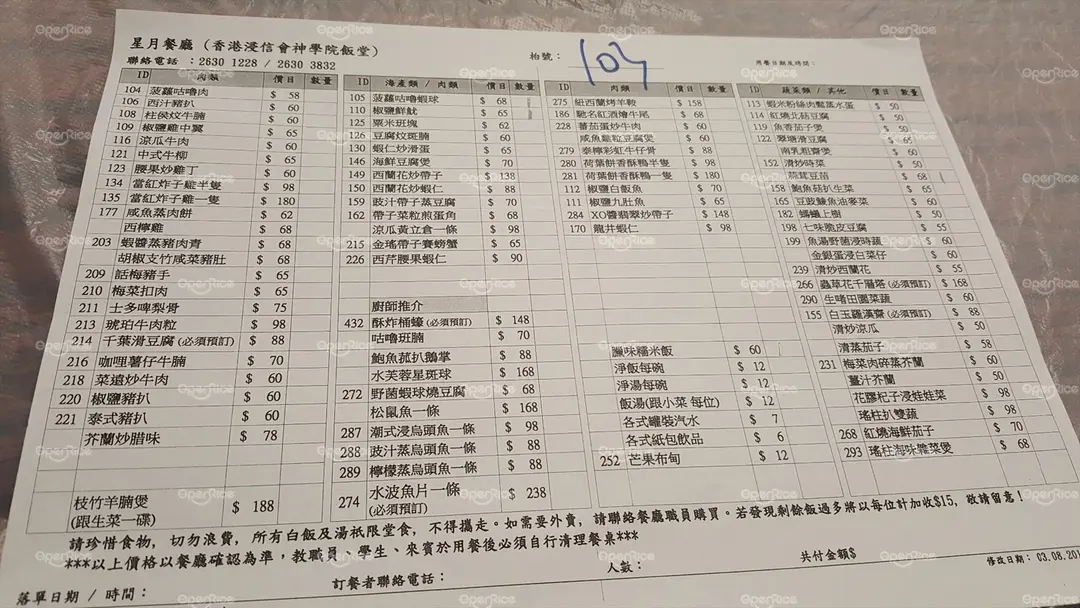 星月餐廳 (香港浸信會神學院飯堂)
聯絡電話 : 2630 1228 / 2630 3832
枱號: 103
用餐日期及時間:
ID 肉類 價目 數量
104 菠蘿咕嚕肉 $ 58
106 西汁豬扒 $ 60
108 柱侯炆牛腩 $ 60
109 椒鹽雞中翼 $ 65
116 涼瓜牛肉 $ 60
121 中式牛柳 $ 65
123 腰果炒雞丁 $ 60
134 當紅炸子雞半隻 $ 98
135 當紅炸子雞一隻 $ 180
177 咸魚蒸肉餅 $ 62
西檸雞 $ 68
203 蝦醬蒸豬肉青 $ 68
胡椒支竹咸菜豬肚 $ 68
209 話梅豬手 $ 65
210 梅菜扣肉 $ 65
211 士多啤梨骨 $ 75
213 琥珀牛肉粒 $ 98
214 千葉滑豆腐 (必須預訂) $ 88
216 咖喱薯仔牛腩 $ 70
218 菜遠炒牛肉 $ 60
220 椒鹽豬扒 $ 60
221 泰式豬扒 $ 60
芥蘭炒腊味 $ 78
枝竹羊腩煲
(跟生菜一碟) $ 188
ID 海產類 / 肉類 價目 數量
105 菠蘿咕嚕蝦球 $ 68
110 椒鹽鮮魷 $ 65
125 粟米斑塊 $ 62
126 豆腐炆斑腩 $ 60
130 蝦仁炒滑蛋 $ 65
146 海鮮豆腐煲 $ 70
149 西蘭花炒帶子 $ 138
150 西蘭花炒蝦仁 $ 88
159 豉汁帶子蒸豆腐 $ 70
162 帶子菜粒煎蛋角 $ 68
涼瓜黃立倉一條 $ 98
215 金瑤帶子賽螃蟹 $ 65
226 西芹腰果蝦仁 $ 90
廚師推介
432 酥炸桶蠔 (必須預訂) $ 148
咕嚕斑腩 $ 70
鮑魚菰扒鵝掌 $ 88
水芙蓉星斑球 $ 168
272 野菌蝦球燒豆腐 $ 68
松鼠魚一條 $ 168
287 潮式浸烏頭魚一條 $ 98
288 豉汁蒸烏頭魚一條 $ 88
289 檸檬蒸烏頭魚一條 $ 88
274 水波魚片一條
(必須預訂) $ 238
ID 肉類 價目 數量
275 紐西蘭烤羊鞍 $ 158
186 馳名紅酒燴牛尾 $ 68
228 蕃茄蛋炒牛肉 $ 60
咸魚雞粒豆腐煲 $ 60
279 泰檸彩虹牛仔骨 $ 88
280 荷葉餅香酥鴨半隻 $ 98
281 荷葉餅香酥鴨一隻 $ 180
112 椒鹽白飯魚 $ 70
111 椒鹽九肚魚 $ 65
284 XO醬翡翠炒帶子 $ 148
170 龍井蝦仁 $ 98
臘味糯米飯 $ 60
淨飯每碗 $ 12
淨湯每碗 $ 12
飯湯(跟小菜 每位) $ 12
各式罐裝汽水 $ 7
各式紙包飲品 $ 6
252 芒果布甸 $ 12
ID 蔬菜類 / 其他 價目 數量
113 蝦米粉絲肉鬆蒸水蛋 $ 50
114 紅燒北菇豆腐 $ 50
119 魚香茄子煲 $ 50
122 翠塘滑豆腐 $ 65
南乳粗齋煲 $ 60
152 清炒時菜 $ 50
蒜茸豆苗 $ 68
158 鮑魚菇扒生菜 $ 65
165 豆豉鯪魚油麥菜 $ 65
182 螞蟻上樹 $ 50
198 七味脆皮豆腐 $ 55
199 魚湯野菌浸時蔬 $ 60
金銀蛋浸白菜仔 $ 60
239 清炒西蘭花 $ 55
266 蟲草花千層塔 (必須預訂) $ 168
290 生啫田園菜蔬 $ 60
155 白玉羅漢齋 (必須預訂) $ 88
清炒涼瓜 $ 50
清蒸茄子 $ 58
231 梅菜肉碎蒸芥蘭 $ 60
薑汁芥蘭 $ 50
花膠杞子浸娃娃菜 $ 98
瑤柱扒雙蔬 $ 98
268 紅燒海鮮茄子 $ 70
293 瑤柱海味雜菜煲 $ 68
請珍惜食物, 切勿浪費, 所有白飯及湯祇限堂食, 不得攜走。如需要外賣, 請聯絡餐廳職員購買。若發現剩餘飯過多將以每位計加收$15, 敬請留意!
***以上價格以餐廳確認為準, 教職員、學生、來賓於用餐後必須自行清理餐桌***
落單日期 / 時間:
訂餐者聯絡電話:
人數:
共付金額$
修改日期: 03.08.201